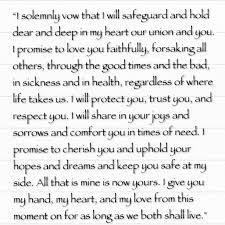 "I solemnly vow that I will safeguard and hold
dear and deep in my heart our union and you.
I promise to love you faithfully, forsaking all
others, through the good times and the bad,
in sickness and in health, regardless of where
life takes us. I will protect you, trust you, and
respect you. I will share in your joys and
sorrows and comfort you in times of need. I
promise to cherish you and uphold your
hopes and dreams and keep you safe at my
side. All that is mine is now yours. I give you
my hand, my heart, and my love from this
moment on for as long as we both shall live."